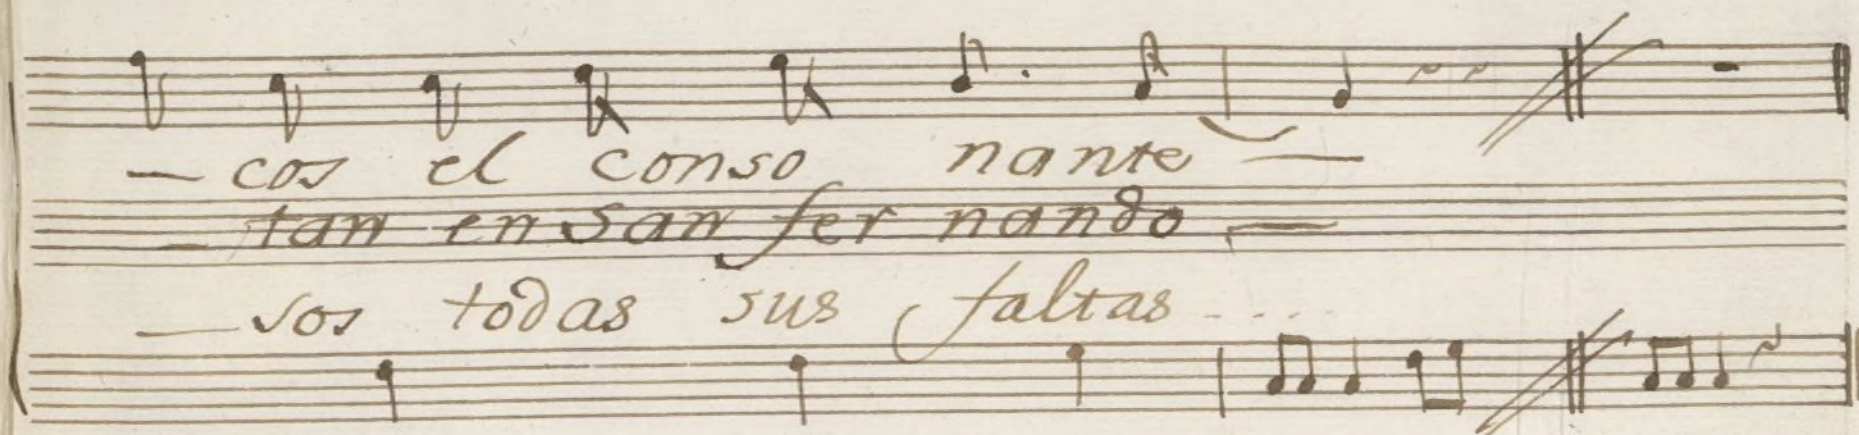 — cos el conso nante —
— tan en San fer nando —
— sos todas sus faltas ....